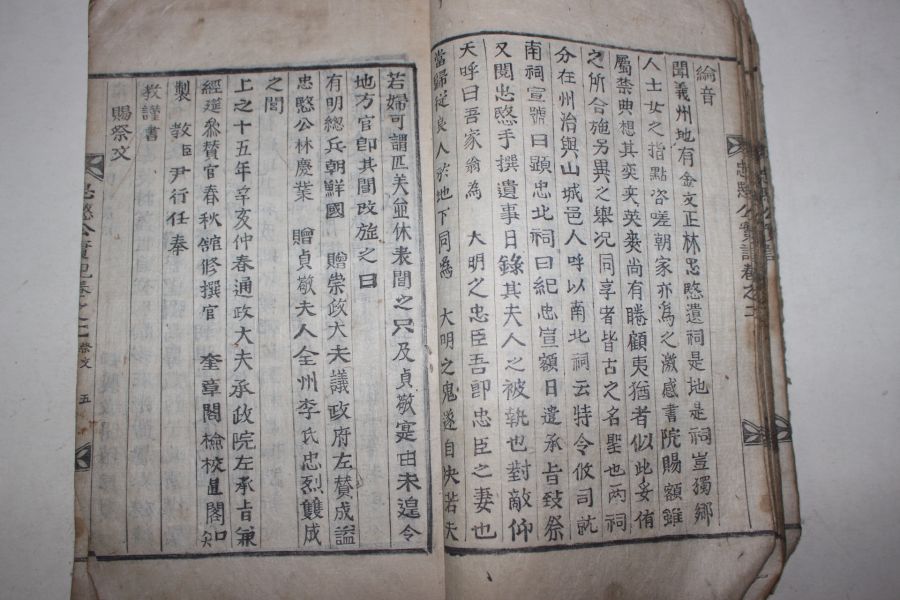 綸音
聞義州地有金文正林忠愍遺祠是地是祠豈獨鄕
人士女之指點咨嗟朝家亦爲之激感書院賜額雖
屬禁典想其奕奕英爽尙有睠顧夷猶者似此妥侑
之所合施另異之擧况同享者皆古之名聖也兩祠
分在州治與山城邑人呼以南北祠云特令攸司就
南祠宣號曰顯忠北祠曰紀忠宣額日遣承旨致祭
又閱忠愍手撰遺事日錄其夫人之被執也對敵仰
天呼曰吾家翁爲 大明之忠臣吾卽忠臣之妻也
當歸從良人於地下同爲 大明之鬼遂自决若夫
若婦可謂匹美並休表閭之只及貞敬寔由未遑令
地方官卽其閭改旋之曰
有明總兵朝鮮國 贈崇政大夫議政府左贊成諡
忠愍公林慶業 贈貞敬夫人全州李氏忠烈雙成
之閭
上之十五年辛亥仲春通政大夫承政院左承旨兼
經筵叅贊官春秋館修撰官 奎章閣檢校直閣知
製 敎臣尹行任奉
敎謹書
賜祭文
忠愍公實記卷之二 祭文 五